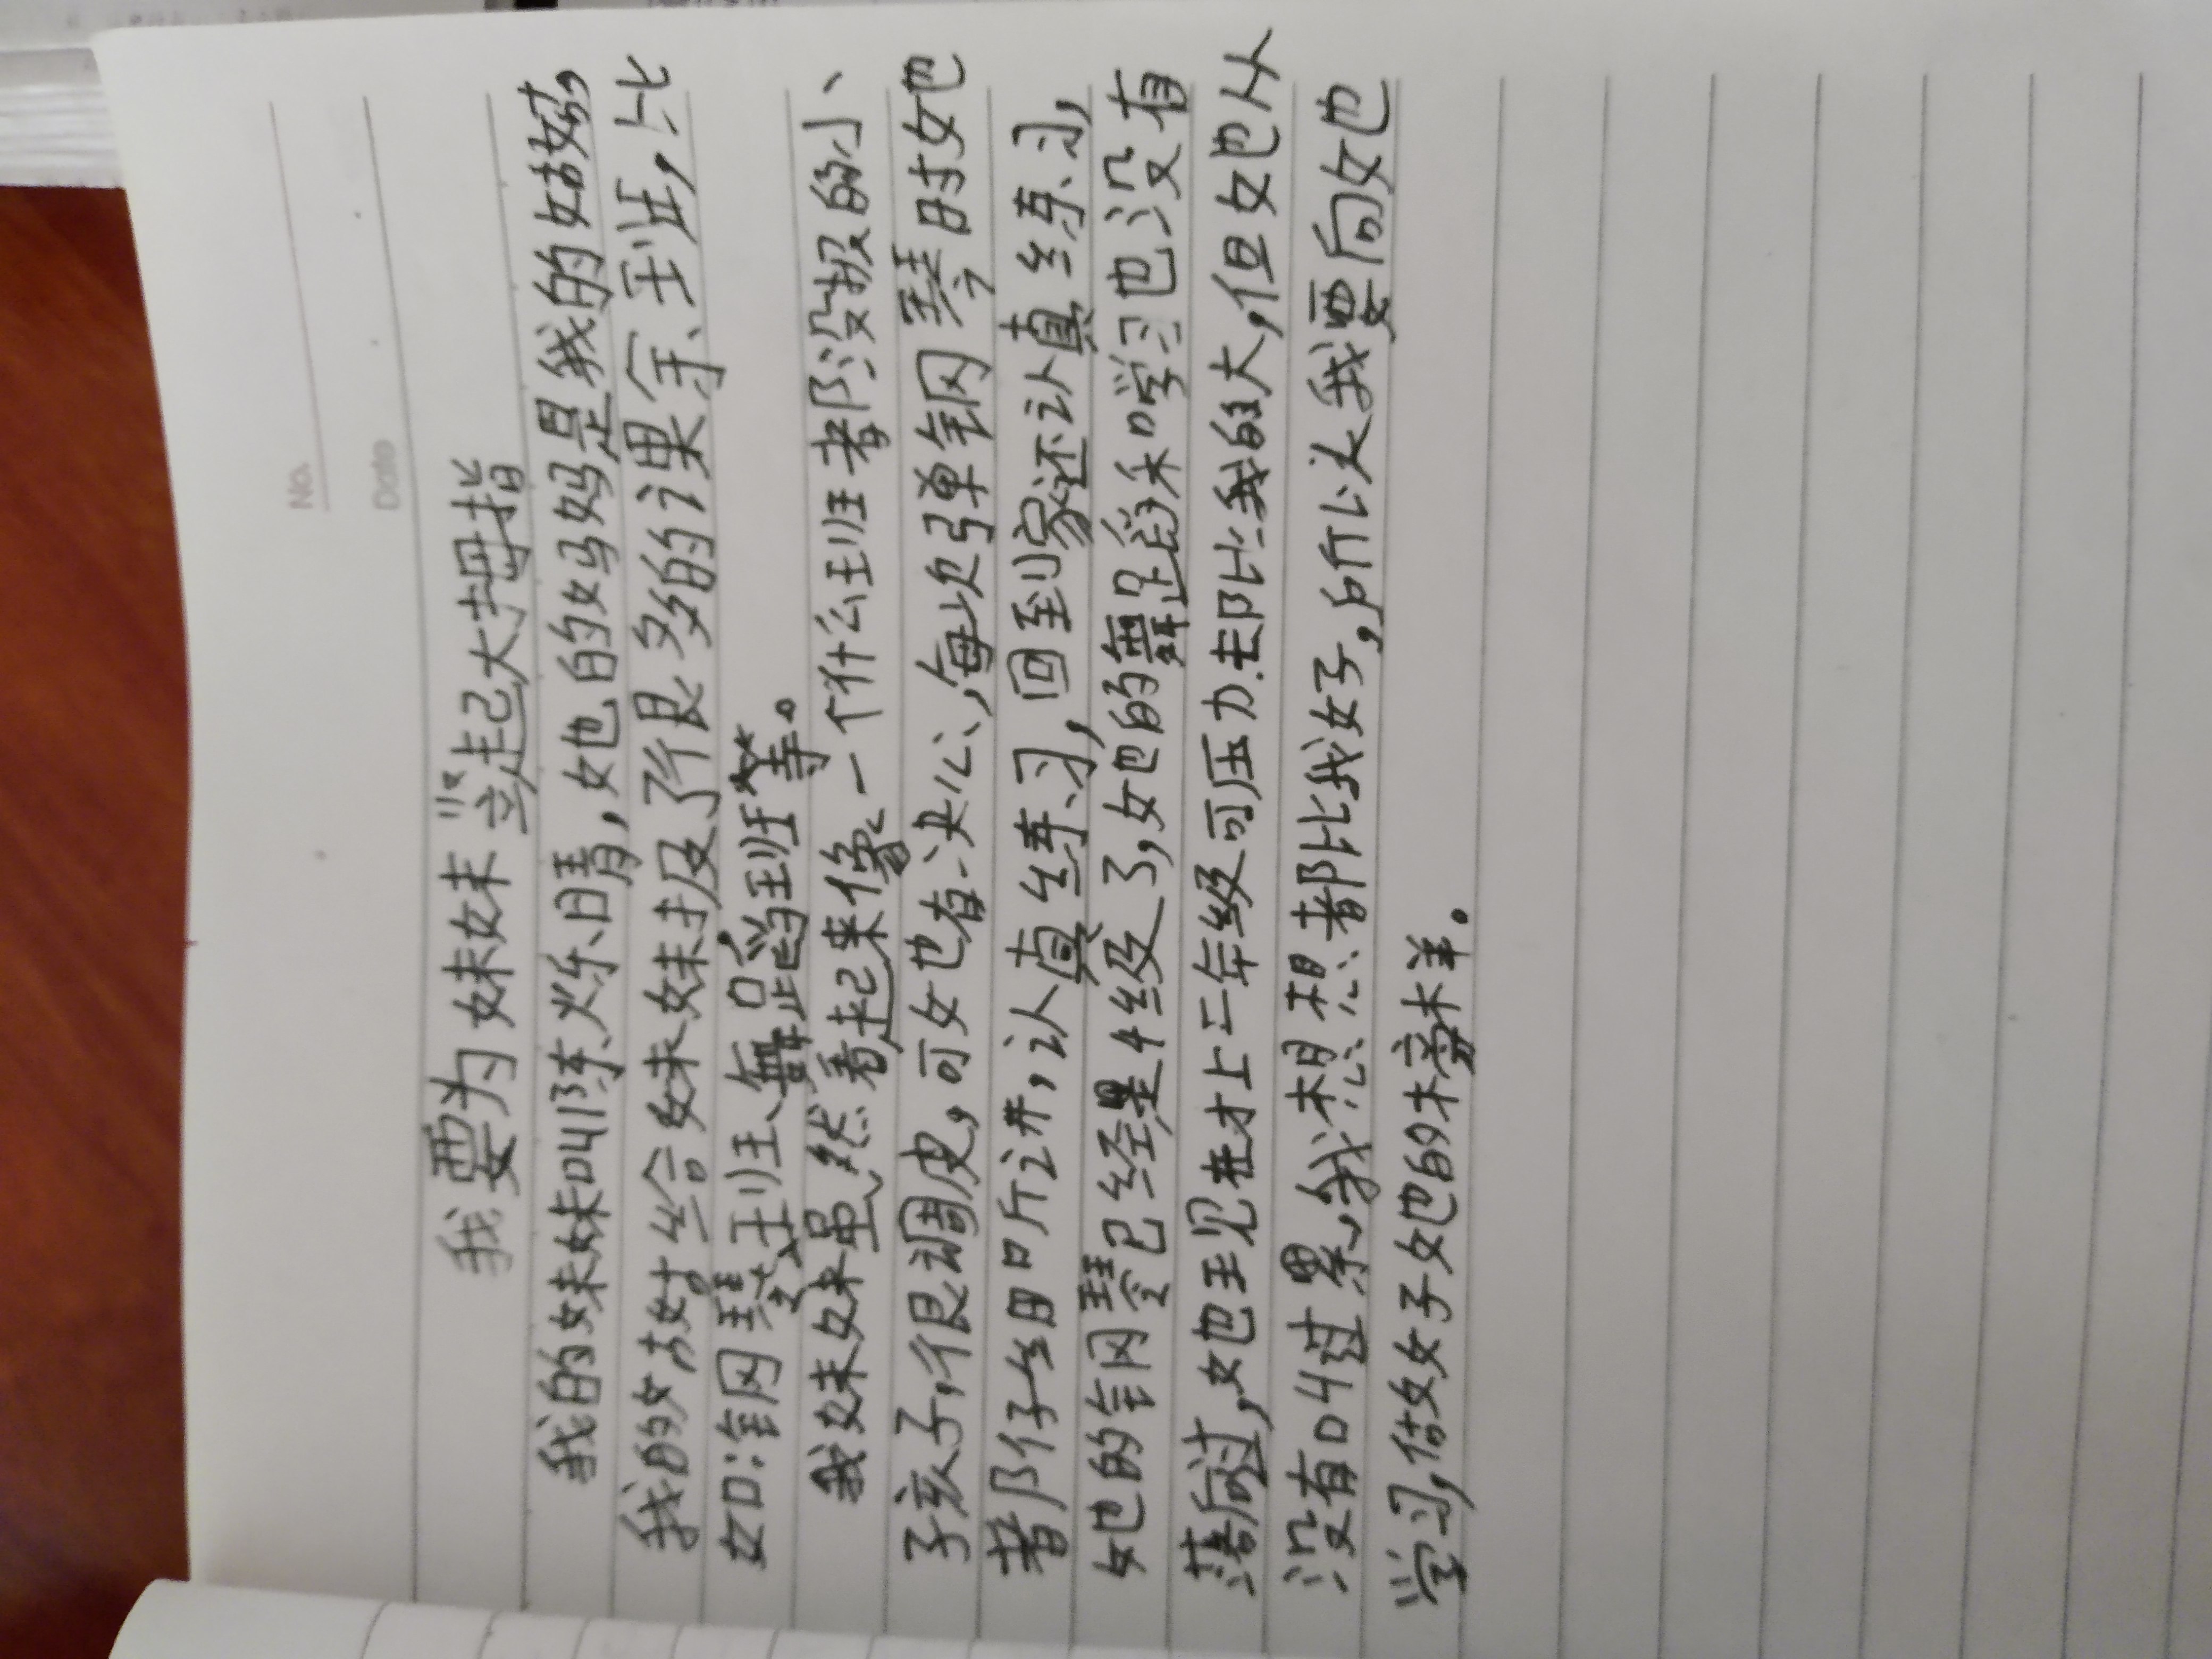 No.
Date
我要为妹妹竖起大拇指
我的妹妹叫陈烁晴,她的妈妈是我的姑姑,
我的姑姑给妹妹报了很多的课余班,比
如:钢琴班、舞蹈班等。
我妹妹虽然看起来像一个什么班都没报的小、
孩子,很调皮,可她有决心,每次弹钢琴时她
都仔细听讲,认真练习,回到家还认真练习,
她的钢琴已经是4级了,她的舞蹈和学习也没有
落后过,她现在才上二年级可压力都比我的大,但她从
没有叫过累,我想想都比我好,所以我要向她
学习,做好她的榜样。